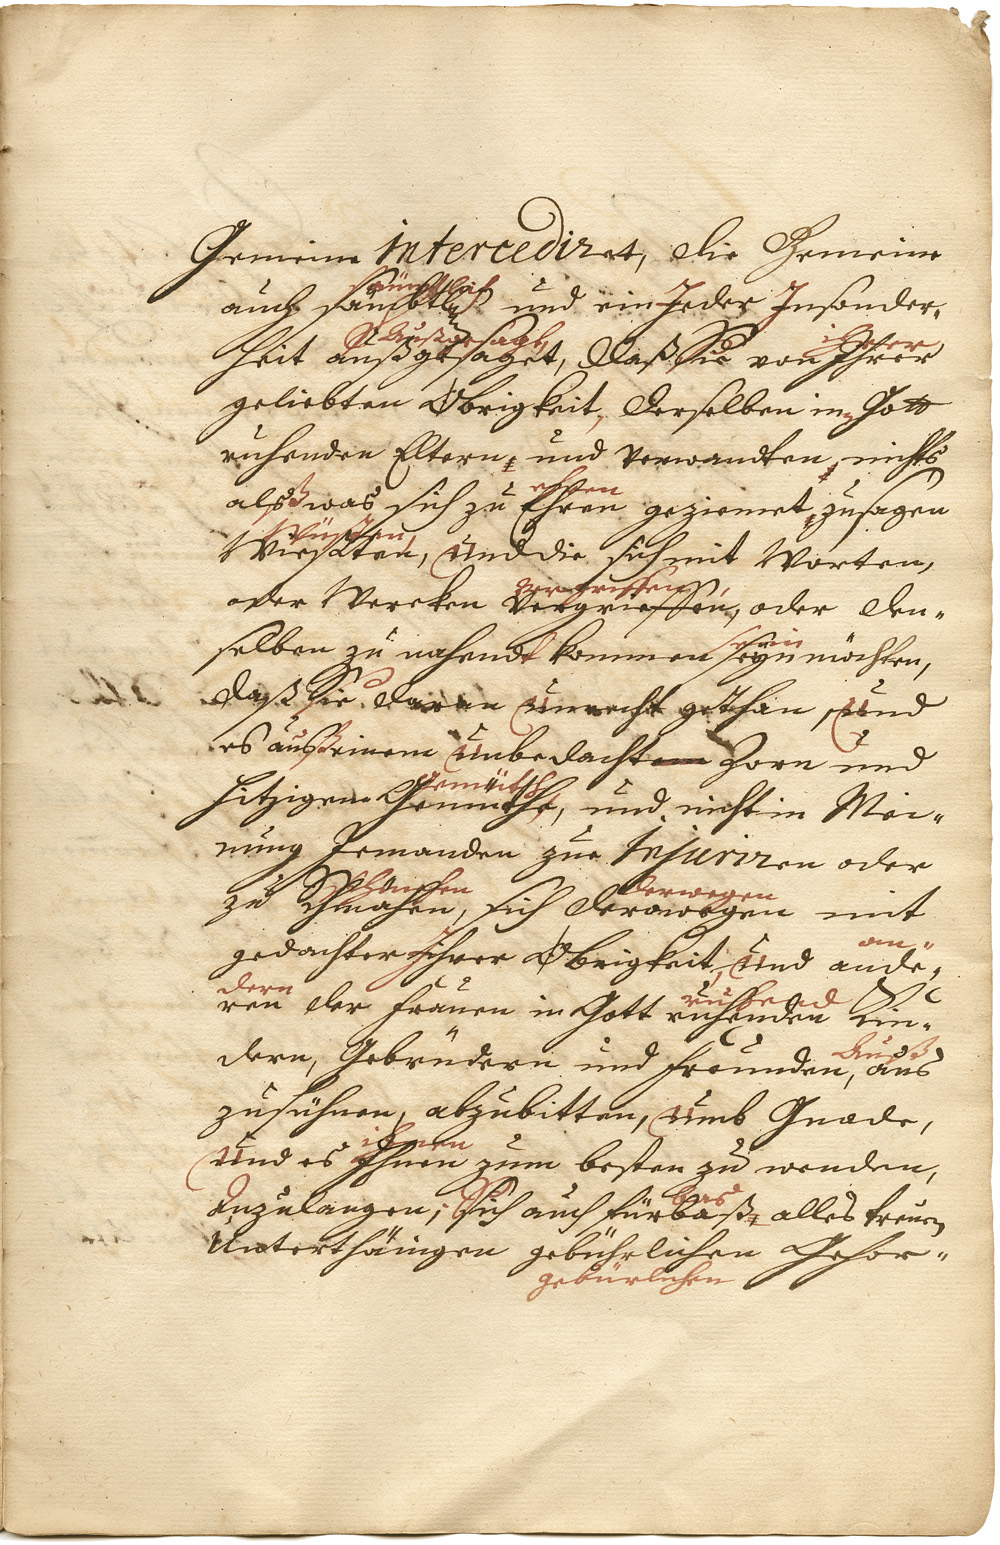 Gemeine intercediret, die Gemeine
sämbtlich
auch sämbtlich und ein Jeder Insonder-
Außgesagt, ihrer
heit außgesaget, daß Sie von Ihrer
geliebten Obrigkeit, derselben in Gott
ruhenden Eltern, und Verwandten, nichts
ehren
alß was sich zu Ehren geziemet, zusagen
Wüsten,
Wiesten, und die sich mit Worten,
vergriffen,
oder Wercken vergrieffen, oder den-
sein
selben zu nahend kommen seyn möchten,
daß Sie daran Unrecht gethan, und
es auß einem Unbedachtem Zorn und
Gemüthe
hitzigem Gemüthe, und nicht in Mei-
nung Jemanden zue Injuriren oder
Schmehen derwegen
zu Schmähen, sich derowegen mit
an-
gedachter Ihrer Obrigkeit, und ande-
dern ruhend
ren der Frauen in Gott ruhenden Kin-
Auß
dern, Gebrüdern und Freunden, aus
zusühnen, abzubitten, umb Gnade,
ihnen
und es Ihnen zum besten zu wenden,
bas
Anzulangen; Sich auch fürbaß alles treuen
Unterthänigen gebührlichen Gehor-
gebürlichen